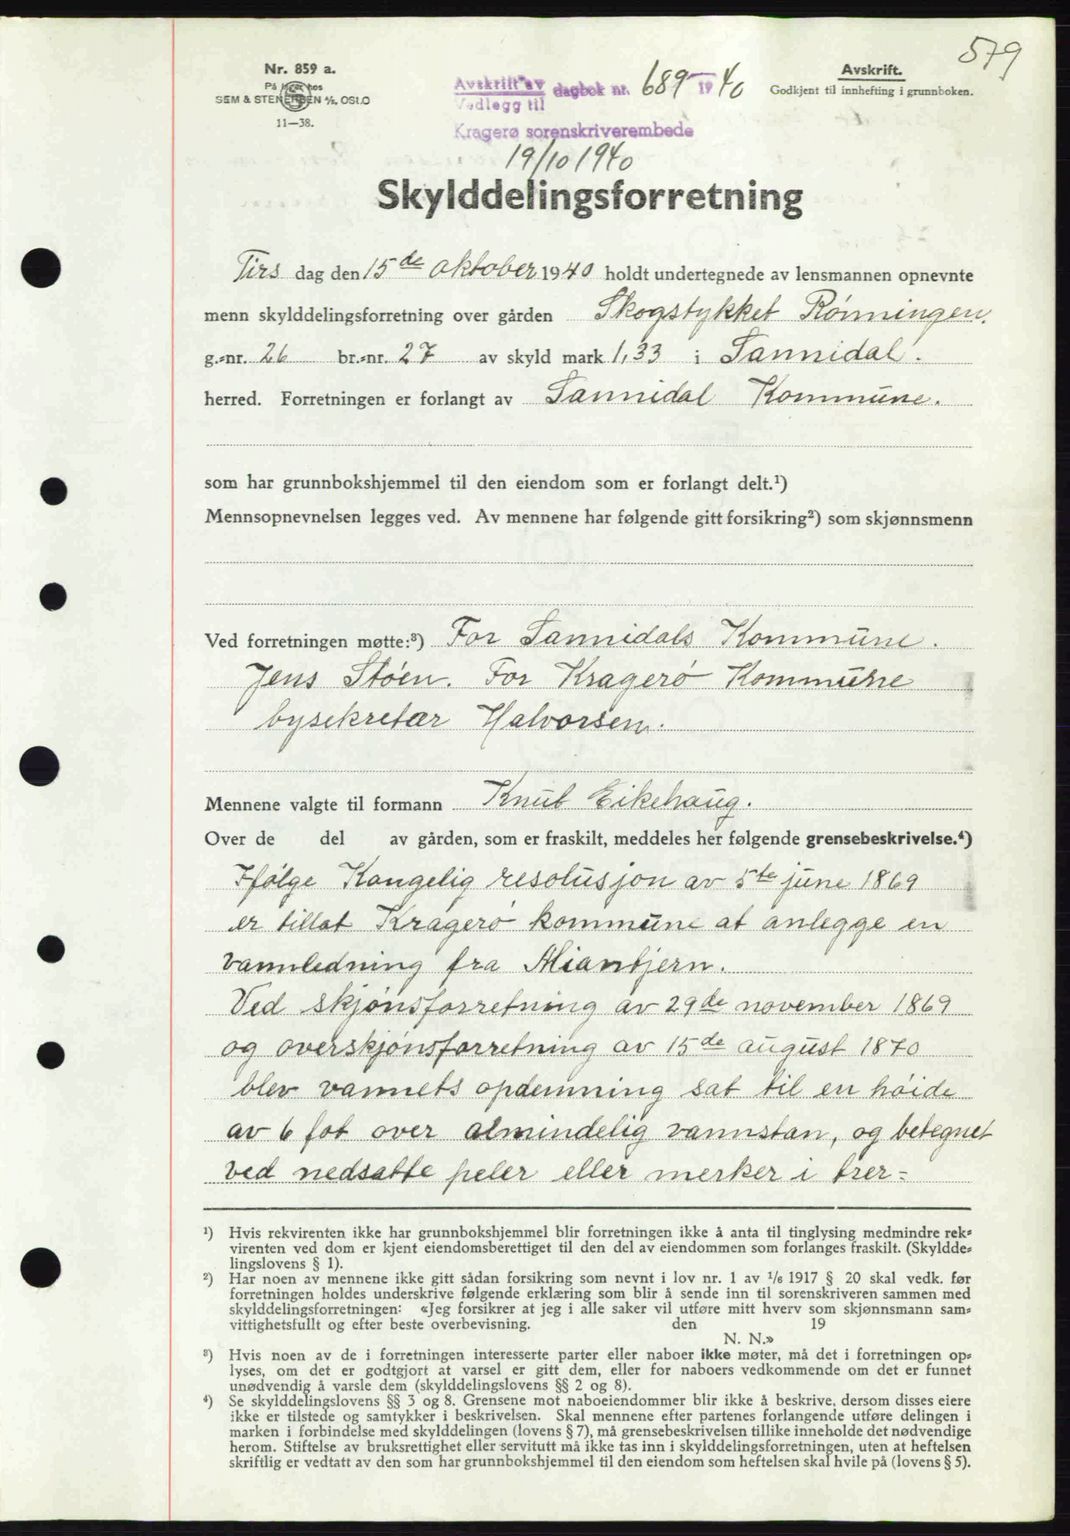 579
Nr. 859 a.
På lager hos
SEM & STENERSEN A/S, OSLO
11—38.
Avskrift av dagbok nr. 689 1940
Vedlegg til
Kragerø sorenskriverembede
19/10 1940
Avskrift.
Godkjent til innhefting i grunnboken.
Skylddelingsforretning
Tirs dag den 15de oktober 1940 holdt undertegnede av lensmannen opnevnte
menn skylddelingsforretning over gården Skogstykket Rønningen.
g.-nr. 26 br.-nr. 27 av skyld mark 1,33 i Sannidal.
herred. Forretningen er forlangt av Sannidal Kommune.
som har grunnbokshjemmel til den eiendom som er forlangt delt.¹)
Mennsopnevnelsen legges ved. Av mennene har følgende gitt forsikring²) som skjønnsmenn
Ved forretningen møtte:³) For Sannidals Kommune.
Jens Støen. For Kragerø Kommune
bysekretær Halvorsen.
Mennene valgte til formann Knut Eikehaug.
Over de del av gården, som er fraskilt, meddeles her følgende grensebeskrivelse.⁴)
Ifølge Kongelig resolusjon av 5te june 1869
er tillat Kragerø kommune at anlegge en
vannledning fra Mianbjern.
Ved skjønsforretning av 29de november 1869
og overskjønsforretning av 15de august 1870
blev vannets opdemning sat til en høide
av 6 fot over almindelig vannstan, og betegnet
ved nedsatte peler eller merker i trer=
¹) Hvis rekvirenten ikke har grunnbokshjemmel blir forretningen ikke å anta til tinglysing medmindre rek-
virenten ved dom er kjent eiendomsberettiget til den del av eiendommen som forlanges fraskilt. (Skyldde-
lingslovens § 1).
²) Har noen av mennene ikke gitt sådan forsikring som nevnt i lov nr. 1 av 1/6 1917 § 20 skal vedk. før
forretningen holdes underskrive følgende erklæring som blir å sende inn til sorenskriveren sammen med
skylddelingsforretningen: «Jeg forsikrer at jeg i alle saker vil utføre mitt hverv som skjønnsmann sam-
vittighetsfullt og efter beste overbevisning. den 19
N. N.»
³) Hvis noen av de i forretningen interesserte parter eller naboer ikke møter, må det i forretningen op-
lyses, om det er godtgjort at varsel er gitt dem, eller for naboers vedkommende om det er funnet
unødvendig å varsle dem (skylddelingslovens §§ 2 og 8).
⁴) Se skylddelingslovens §§ 3 og 8. Grensene mot naboeiendommer blir ikke å beskrive, dersom disses eiere
ikke er tilstede og samtykker i beskrivelsen. Skal mennene efter partenes forlangende utføre delingen i
marken i forbindelse med skylddelingen (lovens § 7), må grensebeskrivelsen tillike inneholde det nødvendige
herom. Stiftelse av bruksrettighet eller servitutt må ikke tas inn i skylddelingsforretningen, uten at heftelsen
skriftlig er vedtatt av den som har grunnbokshjemmel til den eiendom som heftelsen skal hvile på (lovens § 5).